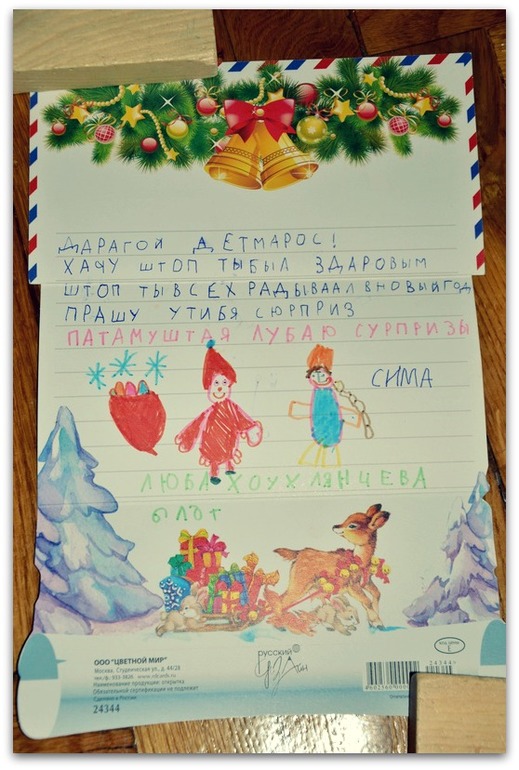 ДАРАГОЙ ДЕТМАРОС!
ХАЧУ ШТОП ТЫБЫЛ ЗДАРОВЫМ
ШТОП ТЫ ВСЕХ РАДЫВААЛ ВНОВЫЙ ГОД
ПРАШУ УТИБЯ СЮРПРИЗ
ПАТАМУШТАЯ ЛУБАЮ СУРПРИЗЫ
СИМА
ЛЮБА ХОУХЛЯНЧЕВА
6 ЛОТ
русский
ООО "ЦВЕТНОЙ МИР"
Москва, Студенческая ул., д. 44/28
тел./ф. 933-3826
Наименование продукции: открытка
Обязательной сертификации не подлежит
Сделано в России
24344
24344